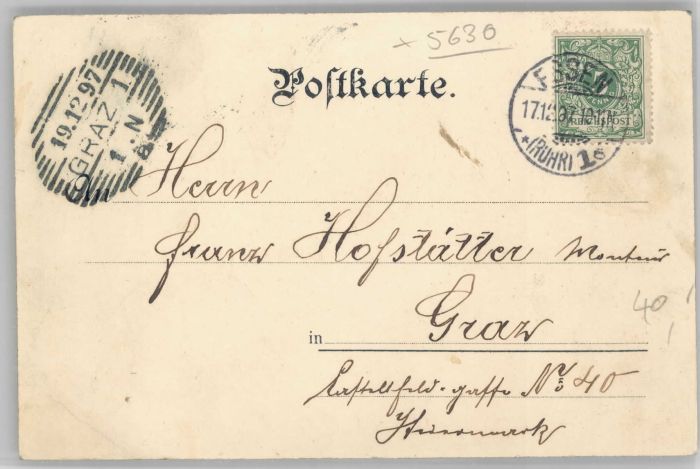 × 5630
Postkarte.
ESSEN
17.12.97 10-11 N
*(RUHR) 1
5
REICHSPOST
19.12.97
GRAZ 1
1.N
8
An Herrn
Franz Hofstätter Monteur
40
in Graz
Castellfeld-gasse No 40
Steiermark